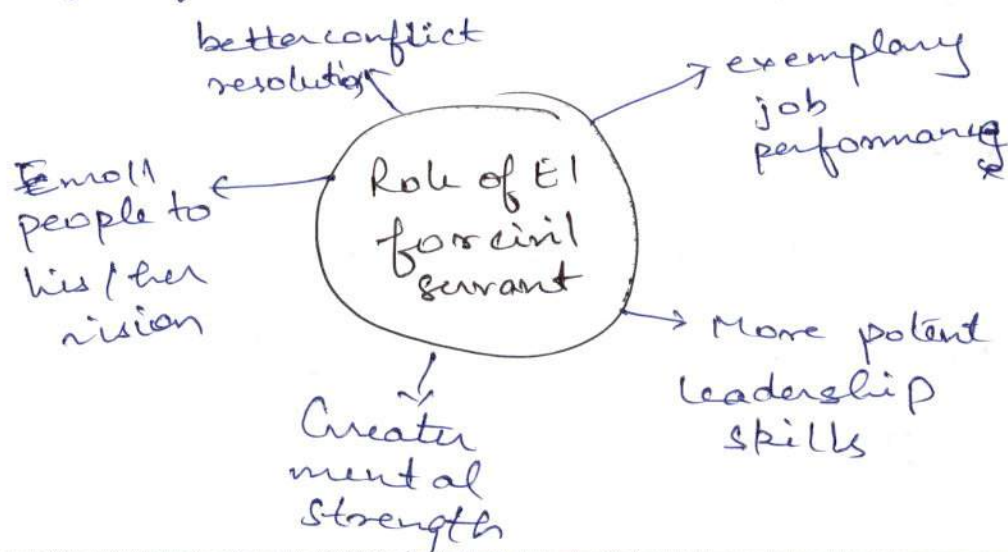 better conflict
resolution
exemplary
job
performance
Enroll
people to
his/her
vision
Role of EI
for civil
servant
More potent
leadership
skills
Greater
mental
strength